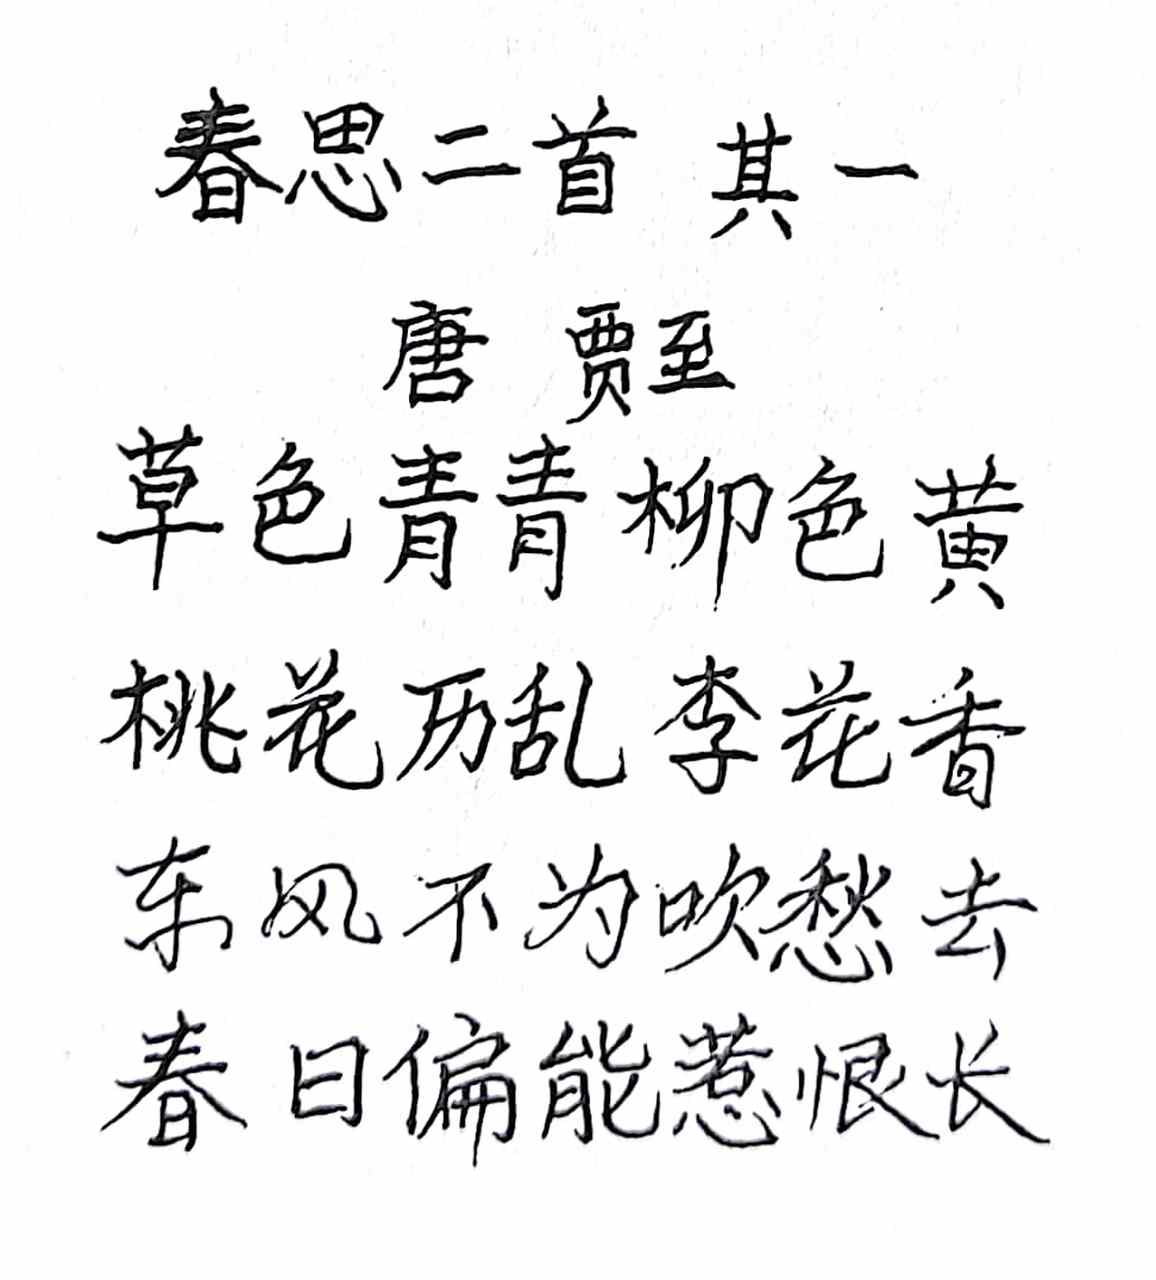 春思二首 其一
唐 贾至
草色青青柳色黄
桃花历乱李花香
东风不为吹愁去
春日偏能惹恨长